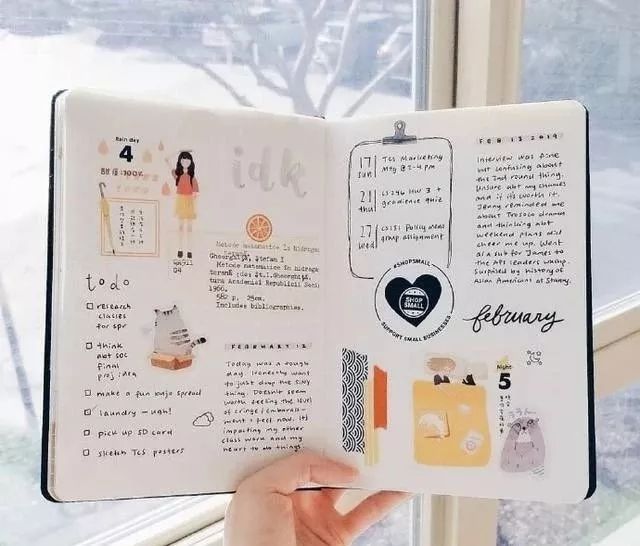 Rain day
4
idk
Metode matematice în hidroga
Gheorghiță, Ștefan I
Metode matematice în hidroga
terană [de] St.I.Gheorghiță,
tura Academiei Republicii Soci
1966.
582 p. 25cm.
Includes bibliographies.
todo
research
classes
for spr
think
abt soc
final
proj idea
make a fun banjo spread
laundry - ugh!
pick up SD card
sketch TCS posters
FEBRUARY 12
Today was a rough
day. Honestly want
to just drop the SING
thing. Doesn't seem
worth feeling the level
of cringe / embarrass-
ment I feel now. It's
impacting my other
class work and my
heart to do things.
17
sun
TCS Marketing
Mtg @ 2-4 pm
21
thu
CS246 HW 3 +
gradience quiz
27
wed
CS181 Policy memo
group assignment
#SHOPSMALL
SHOP
SMALL
SUPPORT SMALL BUSINESSES
FEB 13 2019
Interview was fine
but confusing about
the 2nd round thing.
Unsure abt my chances
and if it's worth it.
Jenny reminded me
about Treasure drama
and thinking abt
weekend plans did
cheer me up. Went
as a sub for James to
the API leaders
Surprised by history of
Asian Americans at Stanny.
february
Night
5